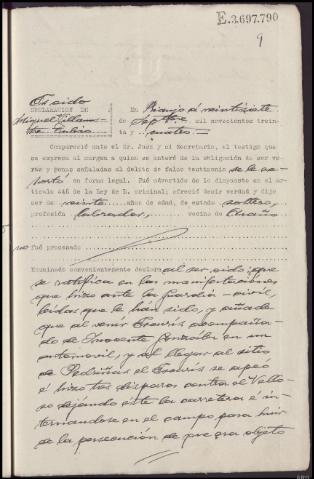 E.3.697.790
9
Oido
DECLARACION DE
Miguel Villan-
En Rianjo á veintisiete
de Septbre mil novecientos trein-
ta y cuatro
Compareció ante el Sr. Juez y el Secretario, el testigo que
se expresa al margen a quien se enteró de la obligación de ser ve-
raz y penas señaladas al delito de falso testimonio
en forma legal. Fué advertido de lo dispuesto en el ar-
tículo 446 de la Ley de E. criminal; ofreció decir verdad y dijo
ser de veinte años de edad, de estado soltero,
profesión labrador, vecino de
no fué procesado
Examinado convenientemente declara al ser oido: que
se ratifica en las manifestaciones
que hizo ante la Guardia civil,
leidas que le han sido, y añade
que al venir acompaña-
do de Inocente González en un
automovil, y al llegar al sitio
de Pedriñas el se apeó
é hizo tres disparos contra el
dejando éste la carretera é in-
ternandose en el campo para huir
de la persecución de que era objeto